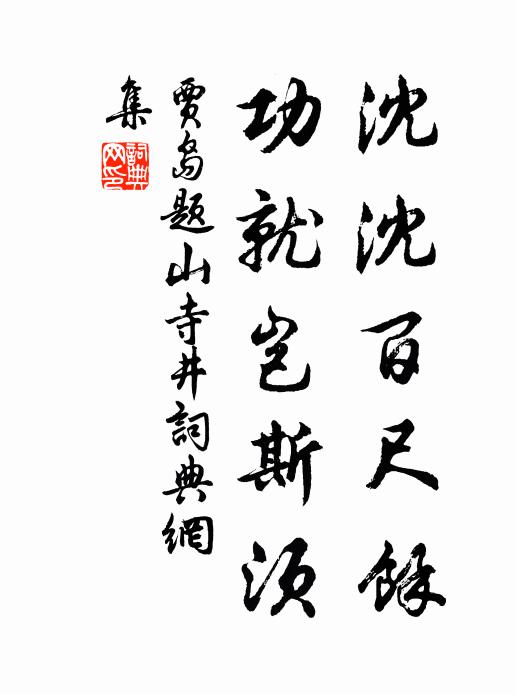 沈沈百尺餘
功就豈斯須
賈島題山寺井詞典網
集
詞典
网印